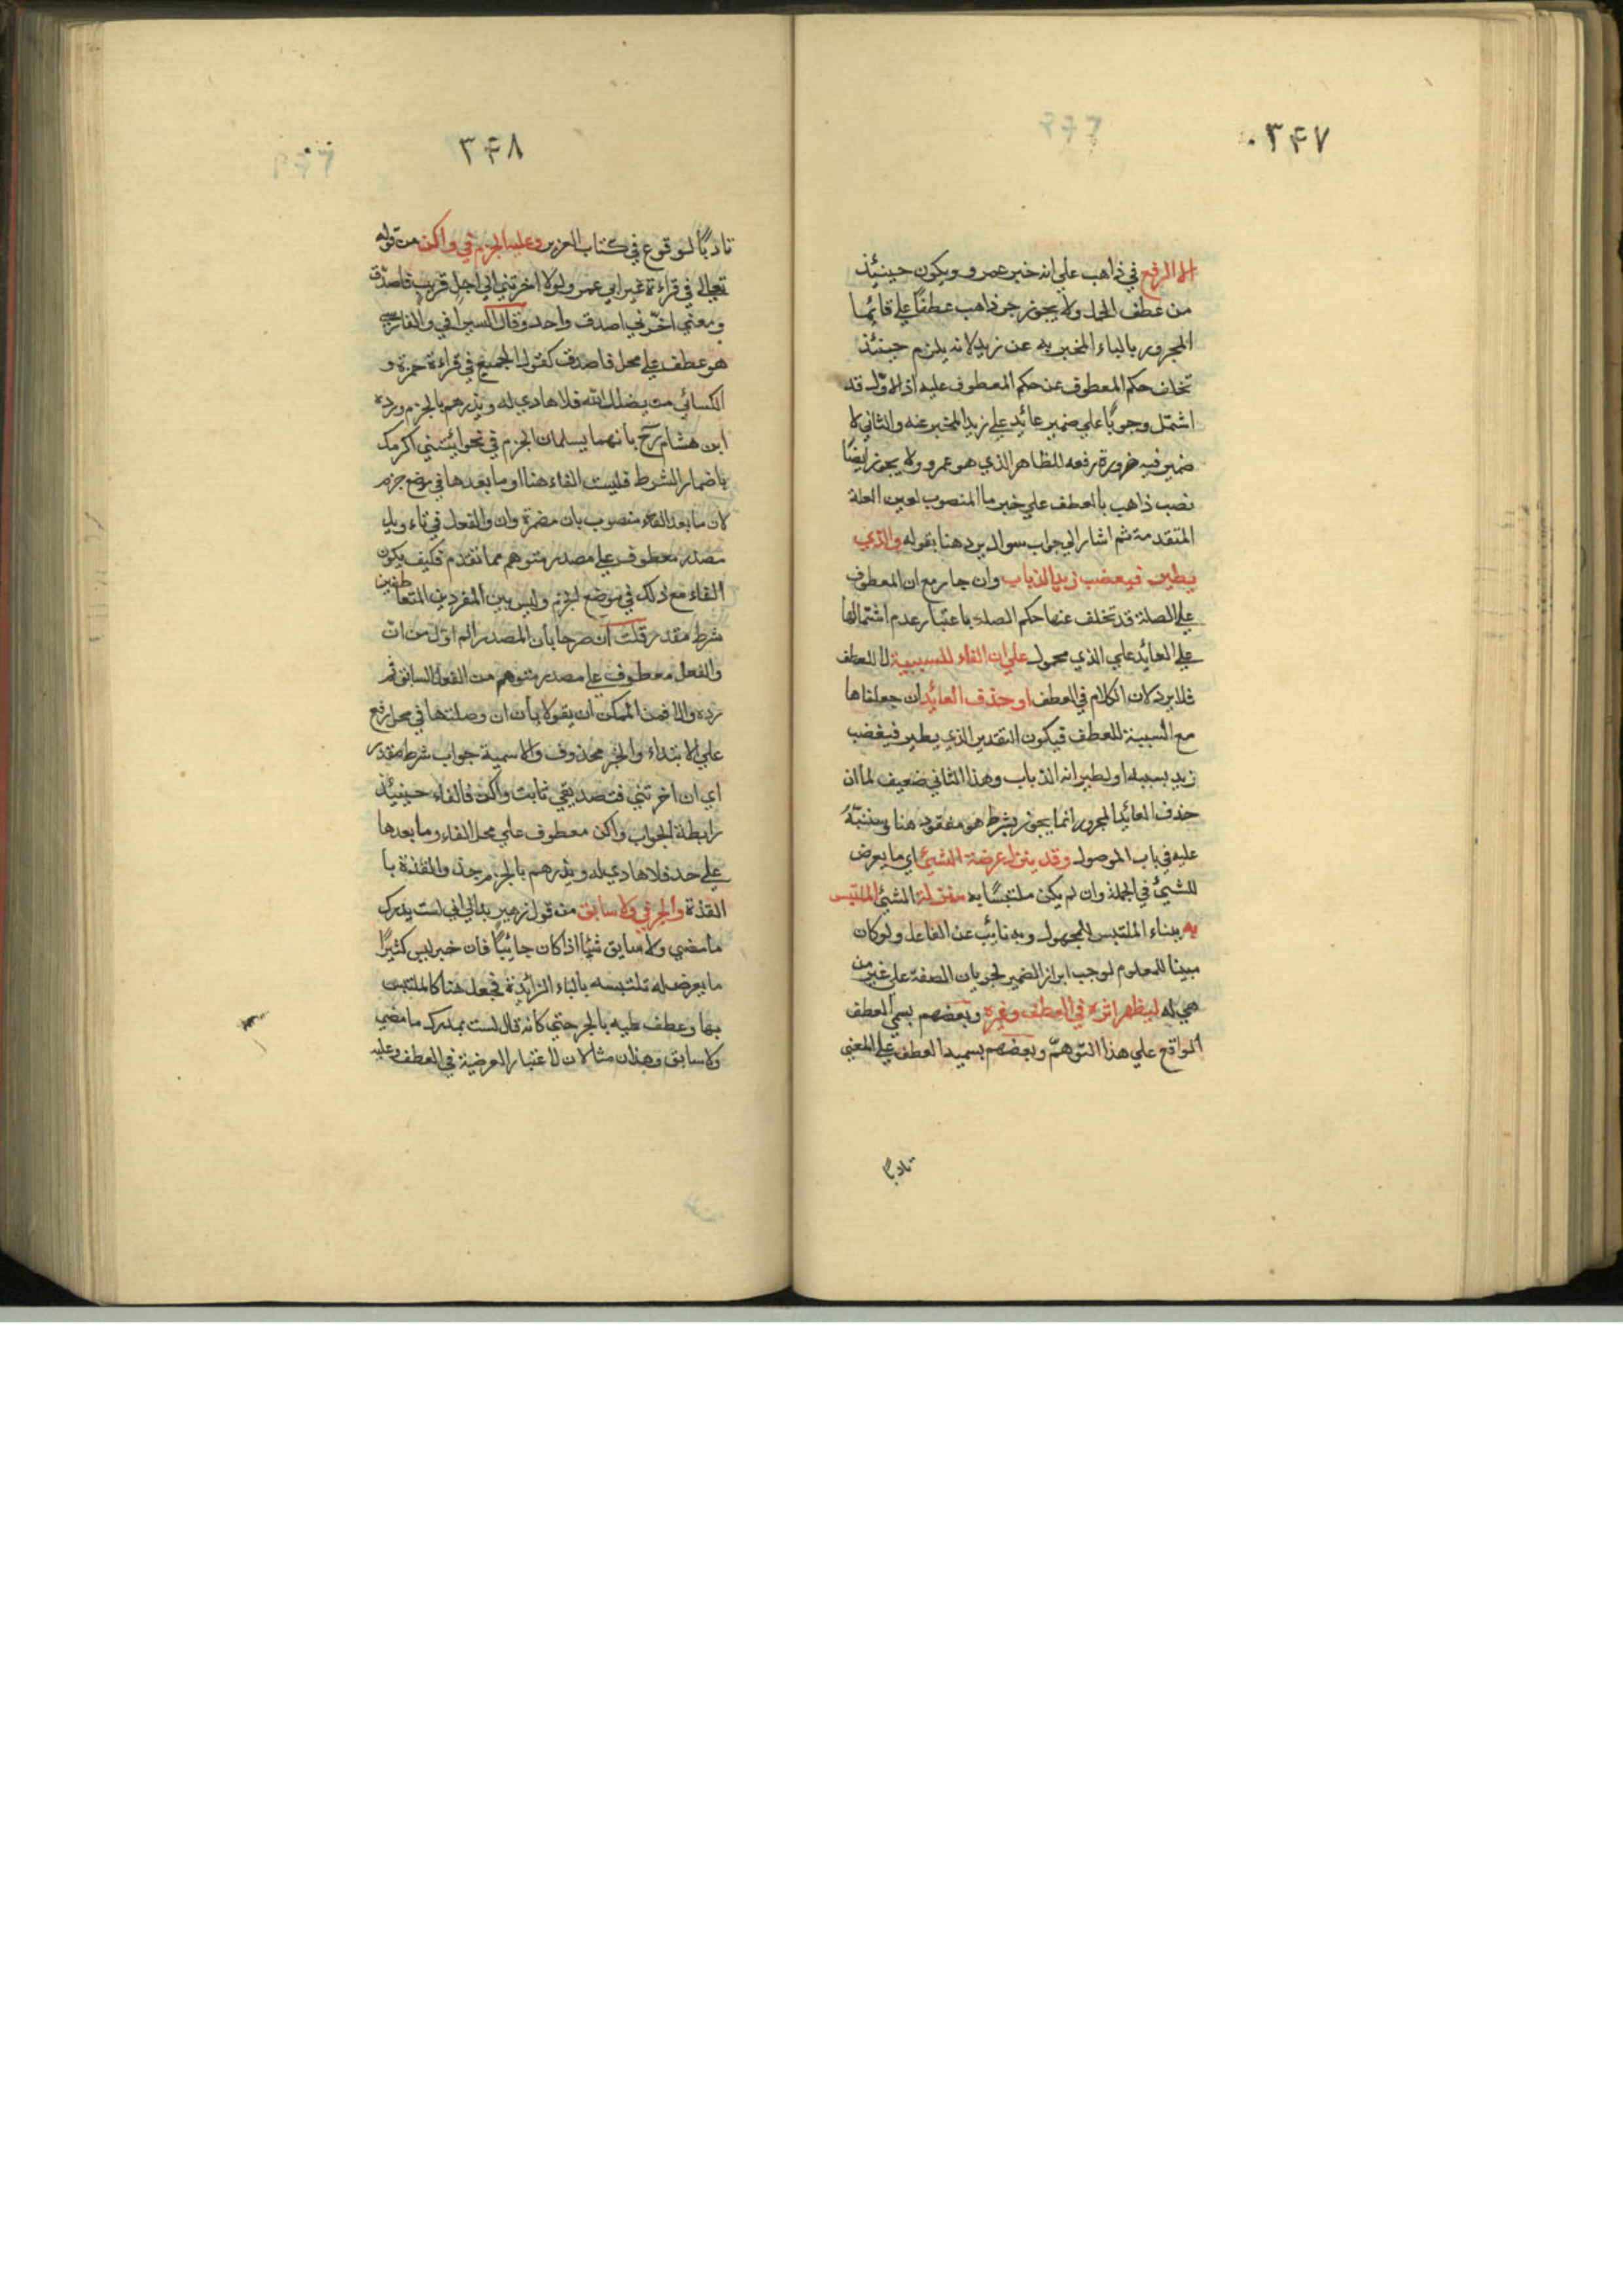 ٣۴٧
الا الرفع في ذاهب علي انه خبر عمرو ويكون حينئذ
من عطف الجمل ولا يجوز جر ذاهب عطفًا علي قائما
المجرور بالباء المخبر به عن زيد لانه يلزم حينئذ
تخلف حكم المعطوف عن حكم المعطوف عليه اذ الاوّل قد
اشتمل وجوبًا علي ضمير عائد علي زيد المخبر عنه والثاني لا
ضمير فيه ضرورة رفعه للظاهر الذي هو عمرو ولا يجوز ايضًا
نصب ذاهب بالعطف علي خبر ما المنصوب لعين العلة
المتقدمة ثم اشار الي جواب سوال يرد هنا بقوله والذي
يطير فيغضب زيد الذباب وان جاز مع ان المعطوف
علي الصلة قد تخلف عنها حكم الصلة باعتبار عدم اشتمالها
علي العايد علي الذي محمول علي ان الفاء للسببية لا للعطف
فلا يرد لان الكلام في العطف او حذف العائد ان جعلناها
مع السببية للعطف فيكون التقدير الذي يطير فيغضب
زيد بسببه او لطيرانه الذباب وهذا الثاني ضعيف لما ان
حذف العائد المجرور انما يجوز بشرط هو مفقود هنا وسننبّه
عليه في باب الموصول وقد ينزل عرضة الشيئ اي ما يعرض
للشيئ في الجملة وان لم يكن ملتبسًا به منزلة الشيئ الملتبس
به ببناء الملتبس للمجهول وبه نائب عن الفاعل ولو كان
مبينا للمعلوم لوجب ابراز الضمير لجريان الصفة علي غير من
هي له ليظهر اثره في العطف وغيره وبعضهم يسمي العطف
الواقع علي هذا التوهمّ وبعضهم يسميه العطف علي المعني
تادبًا
٣۴٨
تادبًا لوقوع في كتاب العزيز وعليه الجزم في واكن من قوله
تعالي في قراءة غير ابي عمرو لولا اخرتني الي اجل قريب فاصدّق
ومعني اخّرني اصدق واحد وقال السيرافي والفارسي
هو عطف علي محل فاصدق كقول الجميع في قراءة حمزة و
الكسائي من يضلل الله فلا هادي له ويذرهم بالجزم وردّه
ابن هشام رح بانهما يسلمان الجزم في نحو ائتني اكرمك
باضمار الشرط فليست الفاء هنا او ما بعدها في موضع جزم
لان ما بعد الفاء منصوب بان مضمرة وان والفعل في تاءويل
مصدر معطوف علي مصدر متوهم مما تقدم فكيف يكون
الفاء مع ذلك في موضع الجزم وليس بين المفردين المتعاطفين
شرط مقدر قلت ان صرحا بان المصدر الماوّل من ان
والفعل معطوف علي مصدر متوهم من الفعل السابق تم
رده والا فمن الممكن ان يقولا بان ان وصلتها في محل رفع
علي الابتداء والخبر محذوف والاسمية جواب شرط مقدر
اي ان اخرتني فتصديقي ثابت واكن فالفاء حينئذ
رابطة الجواب واكن معطوف علي محل الفاء وما بعدها
علي حد فلا هادي له ويذرهم بالجزم حذو القذة با
القذة والجر في ولا سابق من قول زهير بدالي اني لست يدرك
ما مضي ولا سابق شيًا اذا كان جائيًا فان خبر ليس كثيرًا
ما يعرض له تلتبسه بالباء الزائدة فجعل هنا كالملتبس
بها وعطف عليه بالجر حتي كانه قال لست بمدرك ما مضي
ولا سابق وهذان مثالان لاعتبار العرضية في العطف وعليه